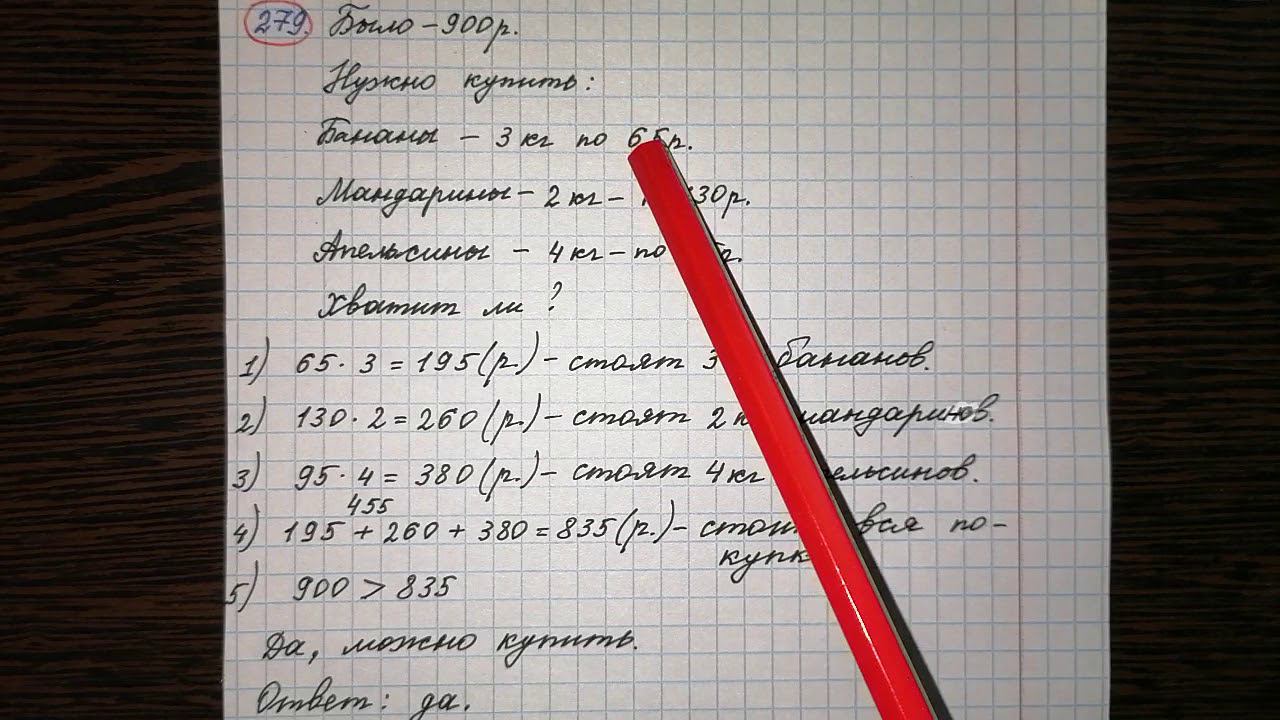 279. Было - 900р.
Нужно купить:
Бананы - 3 кг по 65р.
Мандарины - 2 кг - 130р.
Апельсины - 4 кг - по
Хватит ли ?
1) 65 · 3 = 195 (р.) - стоят 3 бананов.
2) 130 · 2 = 260 (р.) - стоят 2 к мандаринов.
3) 95 · 4 = 380 (р.) - стоят 4 кг апельсинов.
455
4) 195 + 260 + 380 = 835 (р.) - стоит вся по-
купк
5) 900 > 835
Да, можно купить.
Ответ: да.